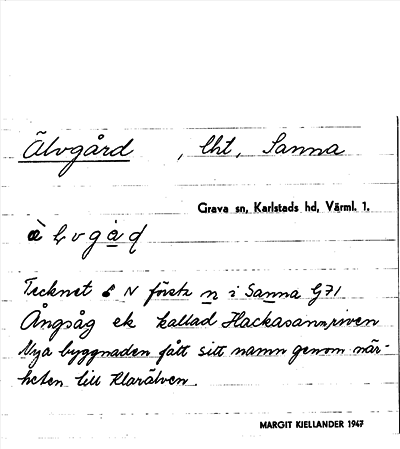 Älvgård, lht, Sanna
Grava sn, Karlstads hd, Värml. l.
Tecknet N första n i Sanna G71
Ångsåg ek kallad Hackasannriven
Nya byggnaden fått sitt namn genom när-
heten till Klarälven.
MARGIT KIELLANDER 1947